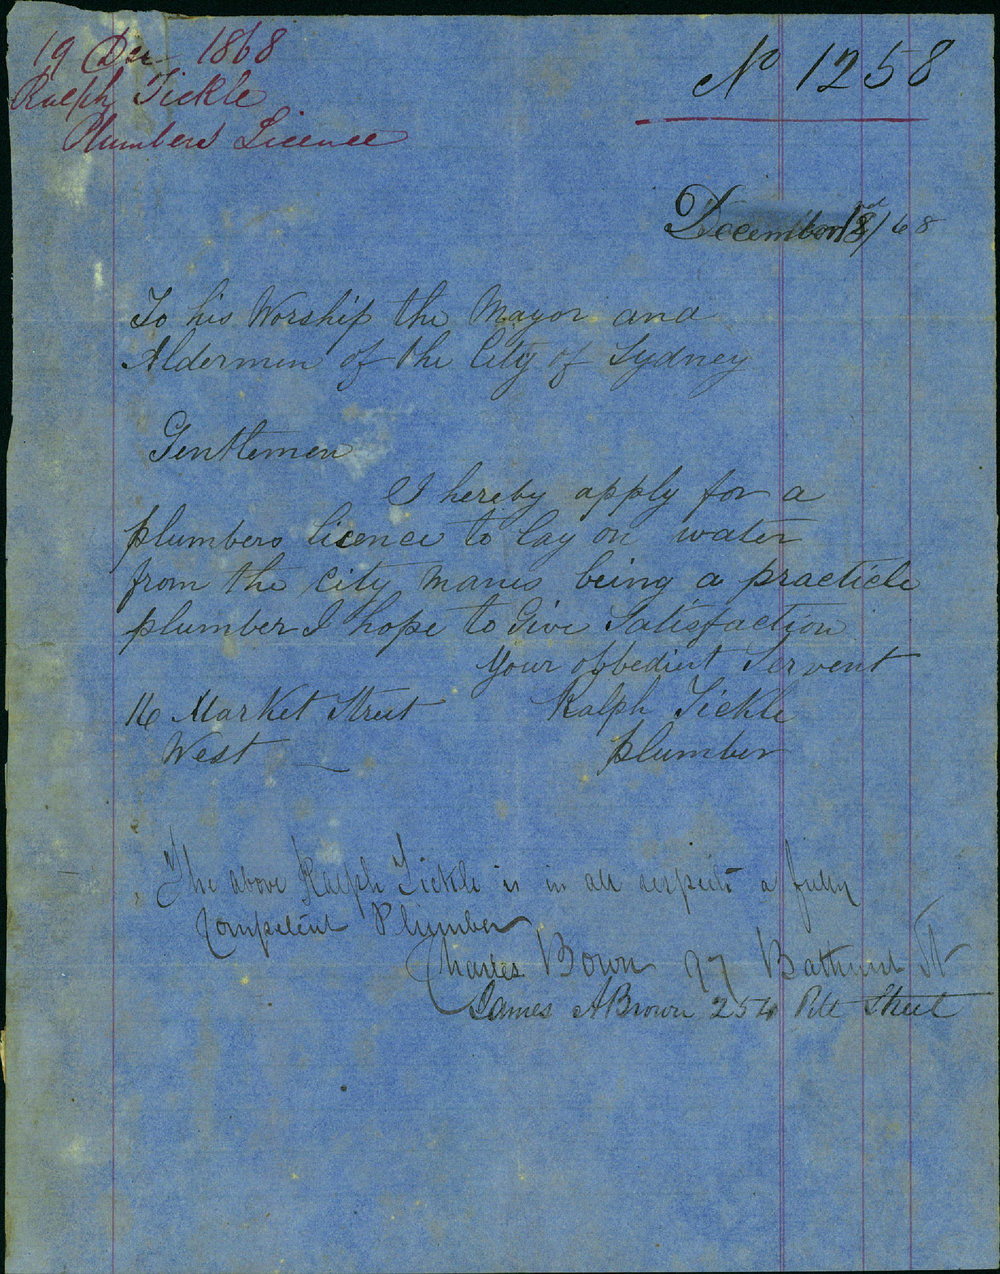 19 Dec 1868
Ralph Tickle
Plumbers Licence
No 1258
December 18/68
To his Worship the Mayor and
Aldermen of the City of Sydney
Gentlemen
I hereby apply for a
plumbers licence to lay on water
from the city manes being a practicle
plumber I hope to Give Satisfaction
Your obbedient Servent
16 Market Street Ralph Tickle
West plumber
The above Ralph Tickle is in all respects a fully
Competent Plumber
Charles Bown 97 Bathurst St
James A Brown 254 Pitt Street